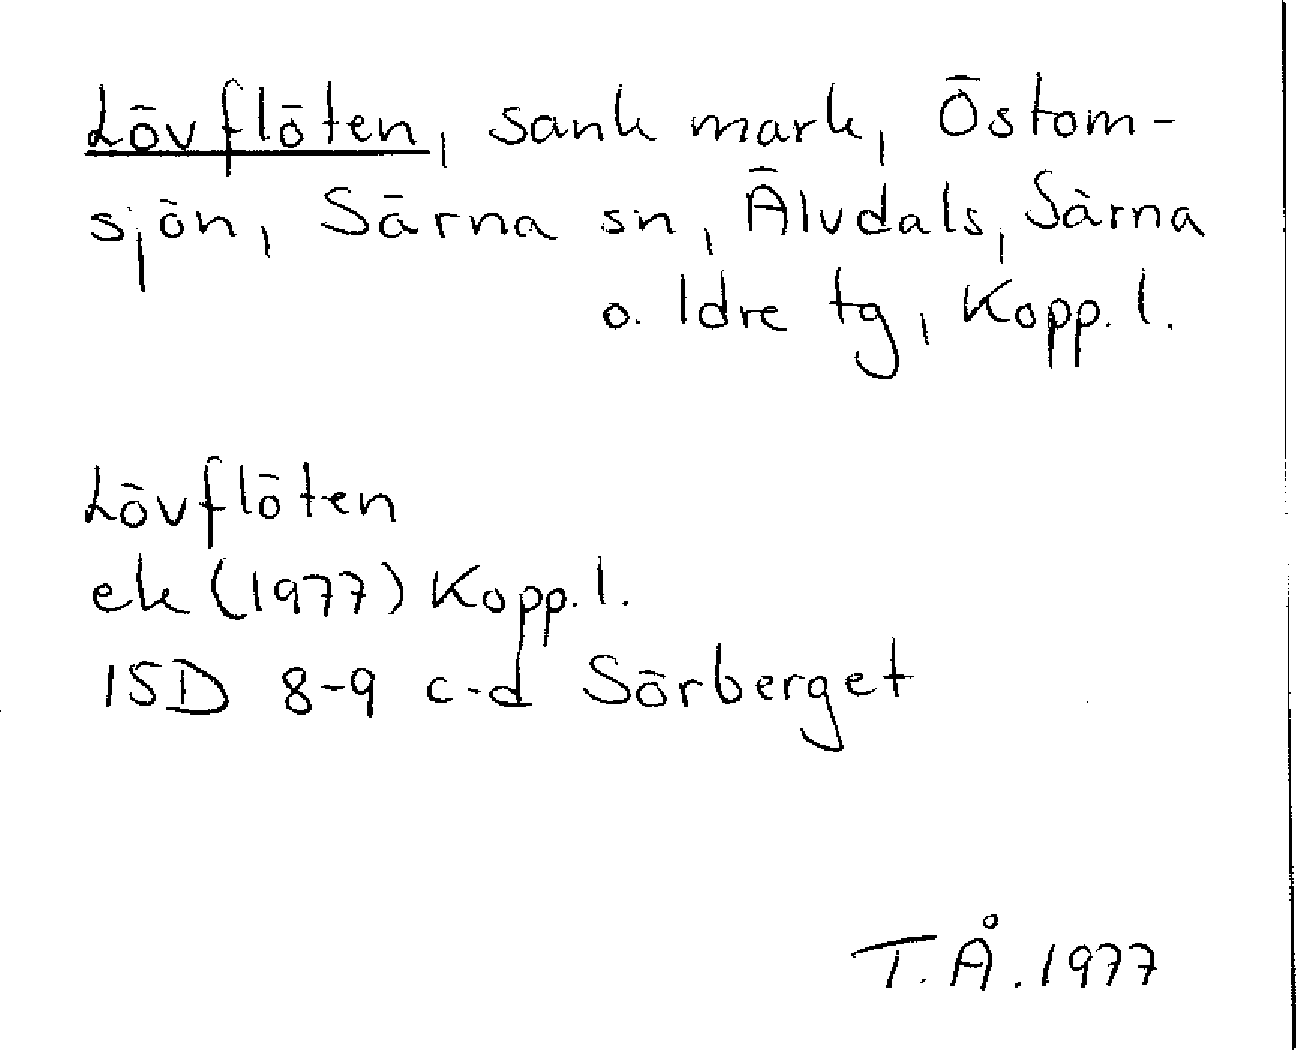 Lövflöten, sank mark, Östom-
sjön, Särna sn, Älvdals, Särna
o. Idre tg, Kopp. l.
Lövflöten
ek (1977) Kopp. l.
15D 8-9 c-d Sörberget
T.Å. 1977